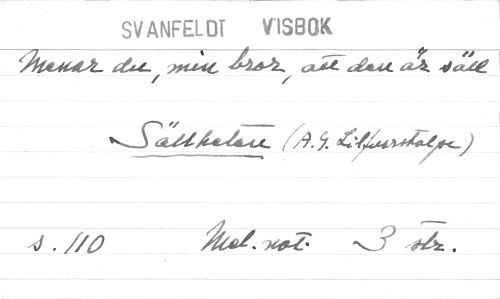 SVANFELDT VISBOK
Menar du, min bror, att den är säll
Sällheten (A.G. Silfverstolpe)
s. 110 Mel. not. 3 str.